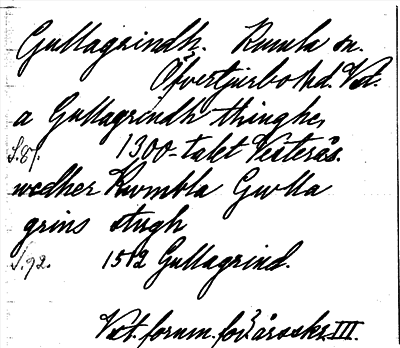 Gullagrindh. Rumla sn.
Öfvertjurbo hd. Vst.
a Gullagrindh thinghe,
S. 81. 1300-talet Vesterås.
wedher Rwmbla Gwlla
grins stigh
S. 92. 1512 Gullagrind.
Vst. fornm. för. årsskr. III.